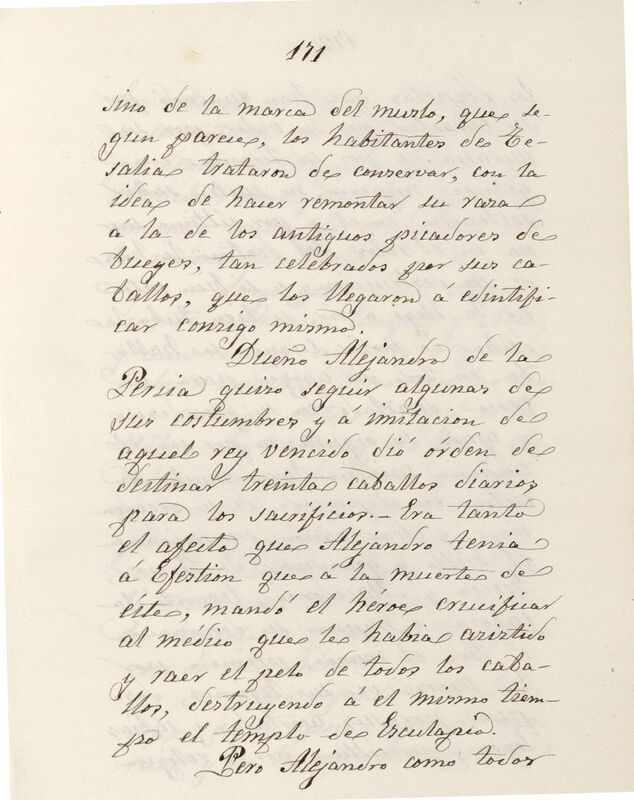 171
sino de la marca del muslo, que se-
gun parece, los habitantes de Te-
salia trataron de conservar, con la
idea de hacer remontar su raza
á la de los antiguos picadores de
bueyes, tan celebrados por sus ca-
ballos, que los llegaron á edintifi-
car conzigo mismo.
Dueño Alejandro de la
Persia quizo seguir algunas de
sus costumbres y á imitacion de
aquel rey vencido dió órden de
destinar treinta caballos diarios
para los sacrificios.- Era tanto
el afecto que Alejandro tenia
á Efestion que á la muerte de
éste, mandó el héroe crucificar
al médico que le habia aziztido
y raer el pelo de todos los caba-
llos, destruyendo á el mismo tiem-
po el templo de Esculapio.
Pero Alejandro como todos